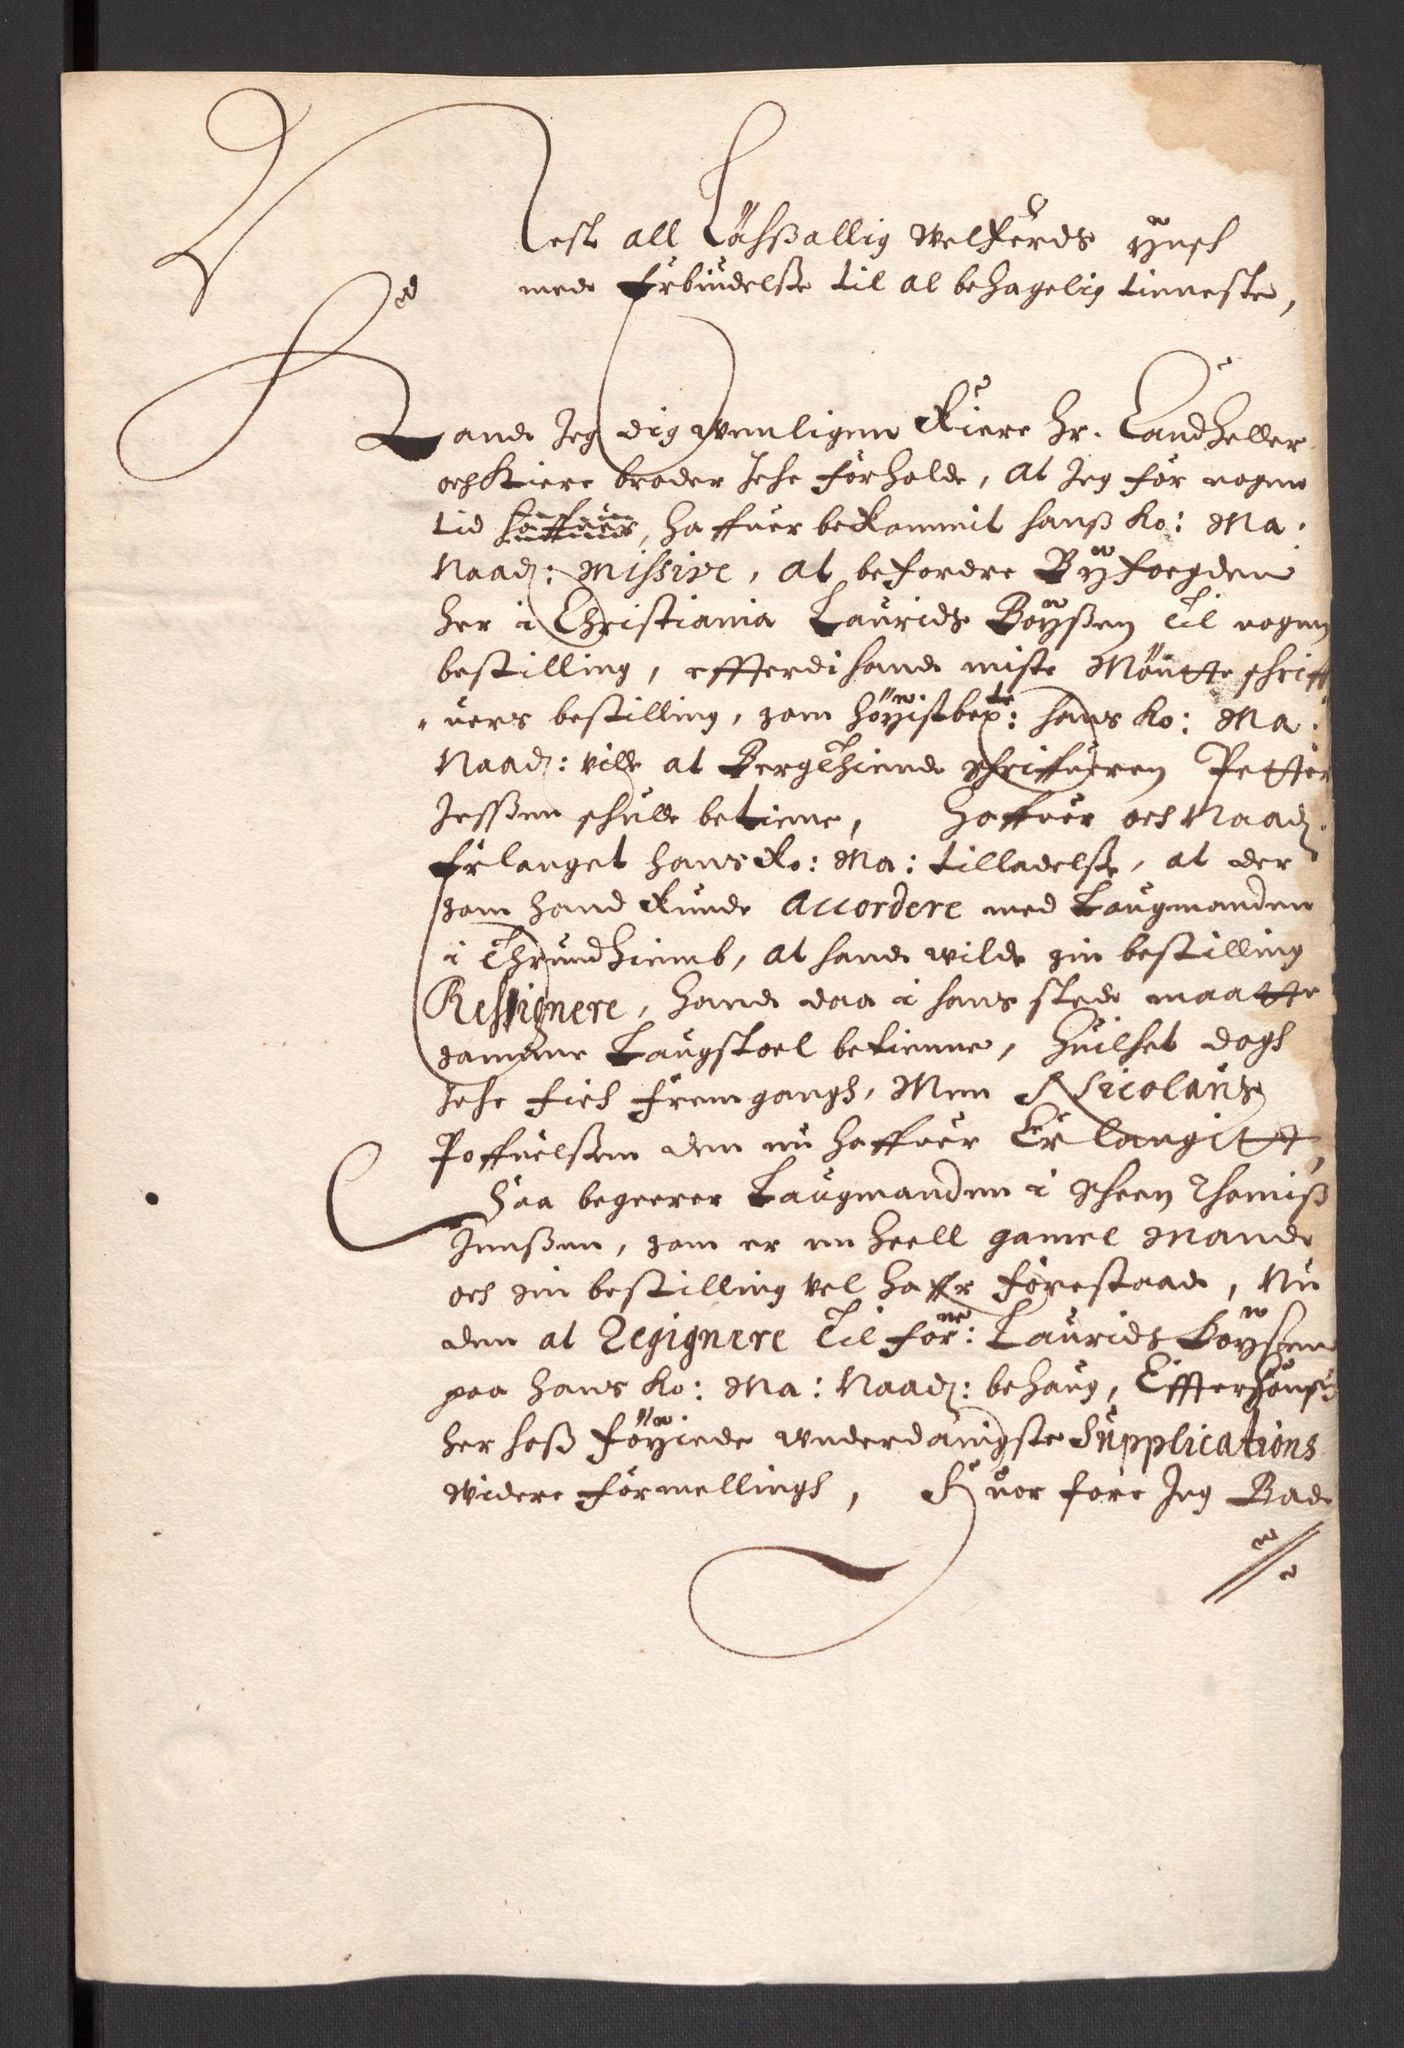 Nest all Løchßallig Velferds ynsch
med Erbiudelse til al behagelig tienneste,
Kand Jeg dig venligen Kiere Hr. Landheller
och Kiere broder Iche forholde, At Jeg for nogen
tid haffuer, haffuer bekommit hanß Ko: Ma.
Naadz: Missive, At befordre Byfoegden
her i Christiania Laurids Boyßen Til nogen
bestilling, effterdi hand miste Møntte schriff
uers bestilling, som høyistbete: hans Ko: Ma:
Naadz: ville at Bergthiende schriffueren Petter
Jenßen schulle betiene, Haffuer och Naadz.
Erlanget hans Ko: Ma: tilladelse, at der
som hand Kunde Accordere med Laugmanden
i Thrundhiemb, At hand vilde sin bestilling
Ressignere, Hand daa i hans sted maatte
samme Laugstoel betienne, Huilchet dogh
Iche fich fremgangh, Men Nicolaus
Poffuelsen den nu haffuer Erlangitt,
Saa begeerer Laugmanden i Scheen Thomiß
Jenßen, som er en heell gamel Mand
och sin bestilling vel haffr forestaad, Nu
den at Resignere Til forne: Laurids Boysen
paa hans Ko: Ma: Naadz: behaug, Effter hanß
her hoß føyiede underdanigste Supplications
videre formellingh, Huor fore Jeg Bad